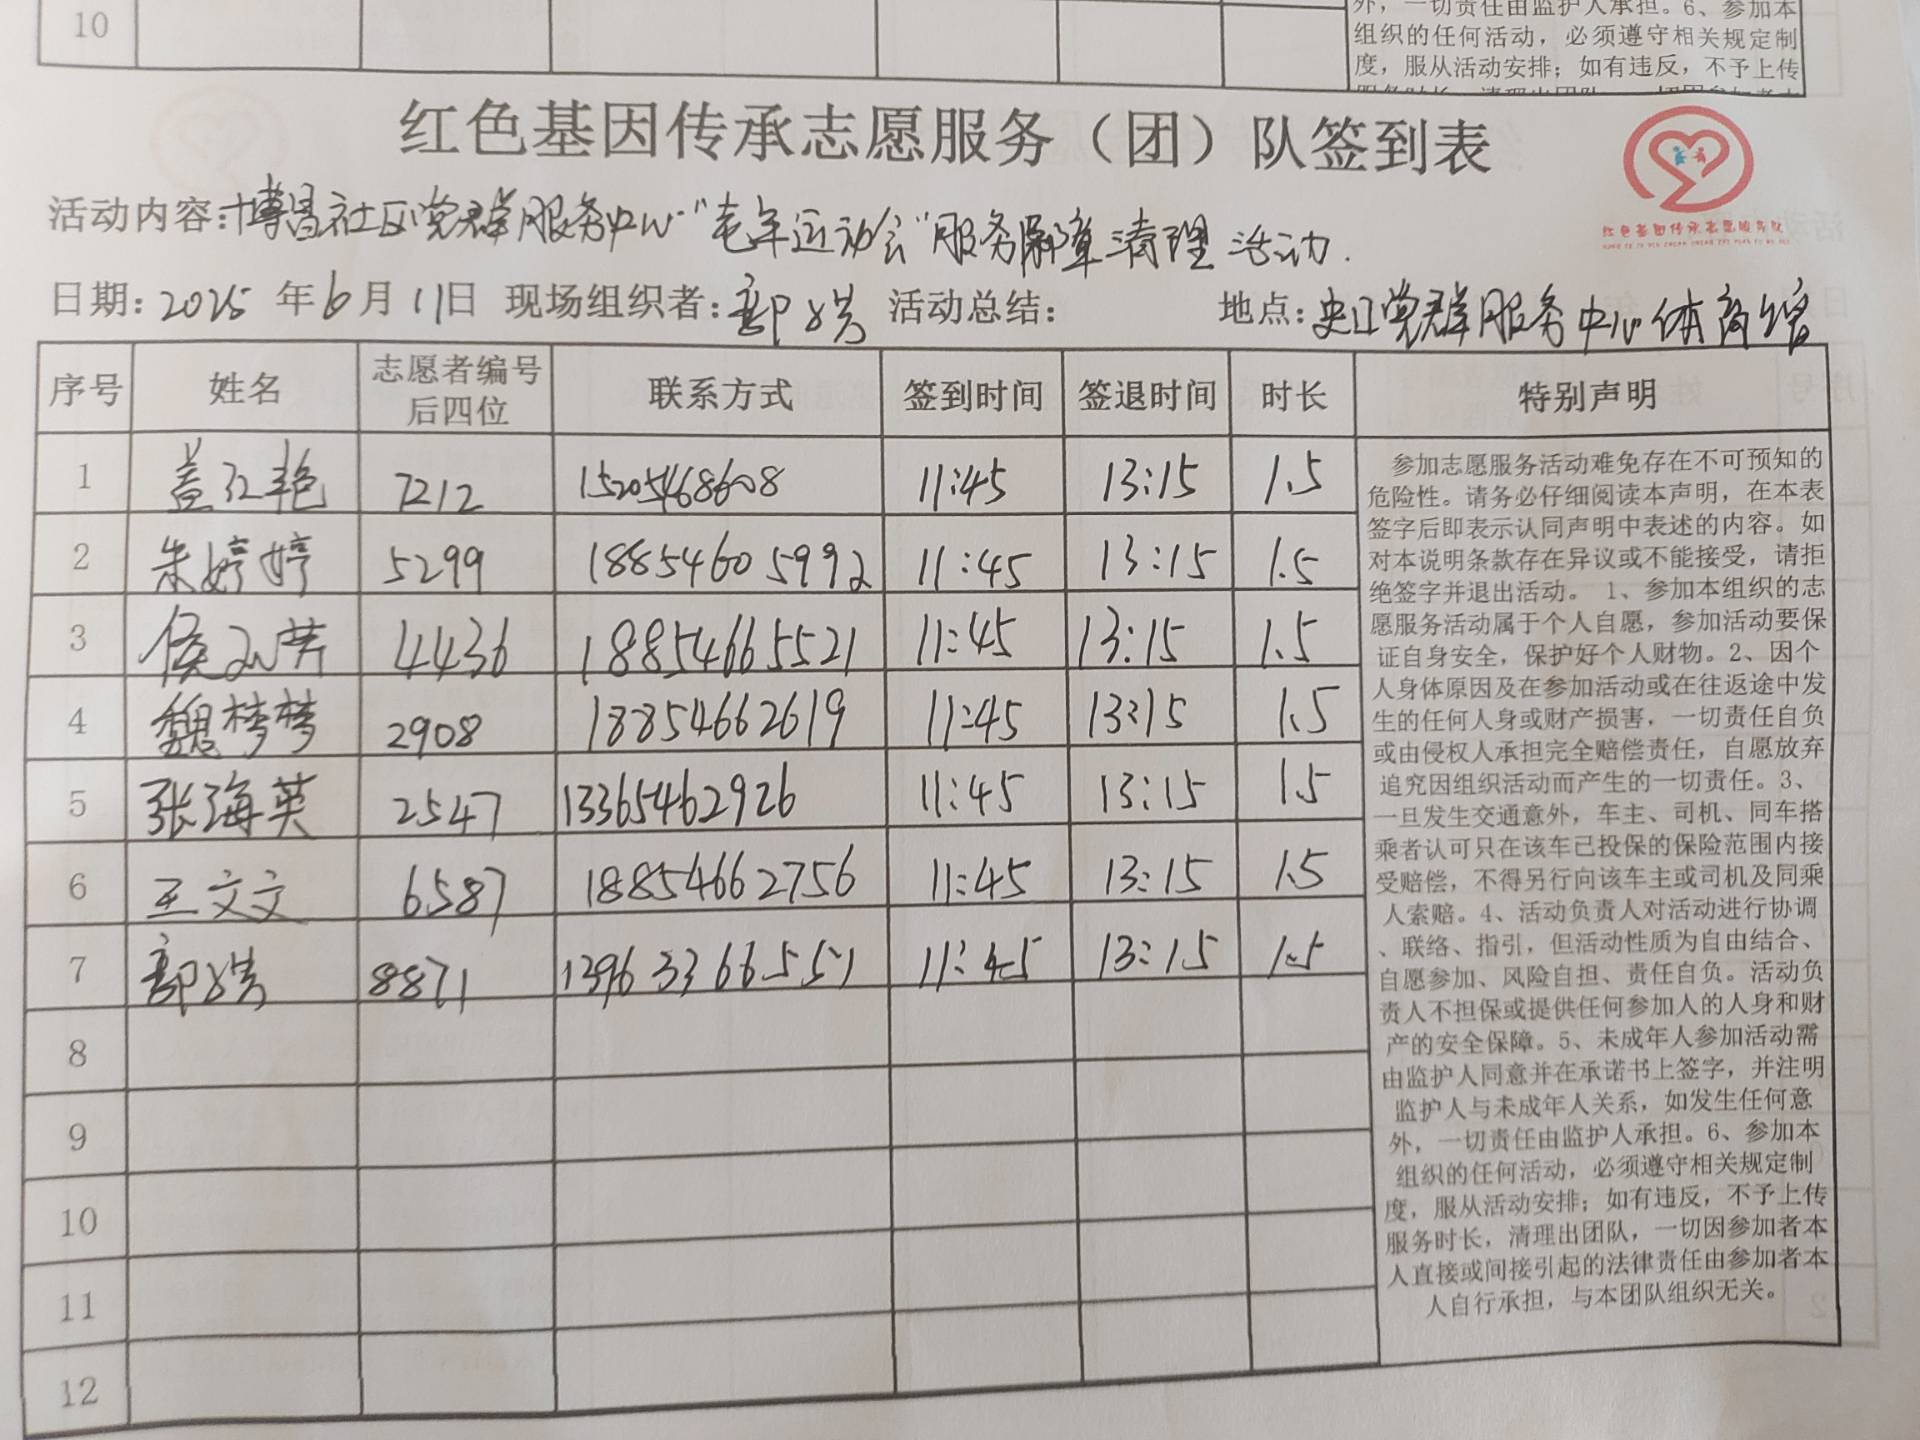 10
外，一切责任由监护人承担。6、参加本
组织的任何活动，必须遵守相关规定制
度，服从活动安排；如有违反，不予上传
红色基因传承志愿服务（团）队签到表
红色基因传承志愿服务队
活动内容：博昌社区党群服务中心"老年运动会"服务 清理活动.
日期：2025年6月11日 现场组织者：郭 活动总结： 地点：史口党群服务中心体育馆
序号 姓名 志愿者编号后四位 联系方式 签到时间 签退时间 时长 特别声明
1 盖红艳 7212 15205468608 11:45 13:15 1.5
2 朱婷婷 5299 18854605992 11:45 13:15 1.5
3 侯 芹 4436 18854665521 11:45 13:15 1.5
4 魏梦梦 2908 18854662619 11:45 13:15 1.5
5 张海英 2547 13365462926 11:45 13:15 1.5
6 王文文 6587 18854662756 11:45 13:15 1.5
7 郭 8871 11:45 13:15 1.5
8
9
10
11
12
参加志愿服务活动难免存在不可预知的
危险性。请务必仔细阅读本声明，在本表
签字后即表示认同声明中表述的内容。如
对本说明条款存在异议或不能接受，请拒
绝签字并退出活动。 1、参加本组织的志
愿服务活动属于个人自愿，参加活动要保
证自身安全，保护好个人财物。2、因个
人身体原因及在参加活动或在往返途中发
生的任何人身或财产损害，一切责任自负
或由侵权人承担完全赔偿责任，自愿放弃
追究因组织活动而产生的一切责任。3、
一旦发生交通意外，车主、司机、同车搭
乘者认可只在该车已投保的保险范围内接
受赔偿，不得另行向该车主或司机及同乘
人索赔。4、活动负责人对活动进行协调
、联络、指引，但活动性质为自由结合、
自愿参加、风险自担、责任自负。活动负
责人不担保或提供任何参加人的人身和财
产的安全保障。5、未成年人参加活动需
由监护人同意并在承诺书上签字，并注明
监护人与未成年人关系，如发生任何意
外，一切责任由监护人承担。6、参加本
组织的任何活动，必须遵守相关规定制
度，服从活动安排；如有违反，不予上传
服务时长，清理出团队，一切因参加者本
人直接或间接引起的法律责任由参加者本
人自行承担，与本团队组织无关。